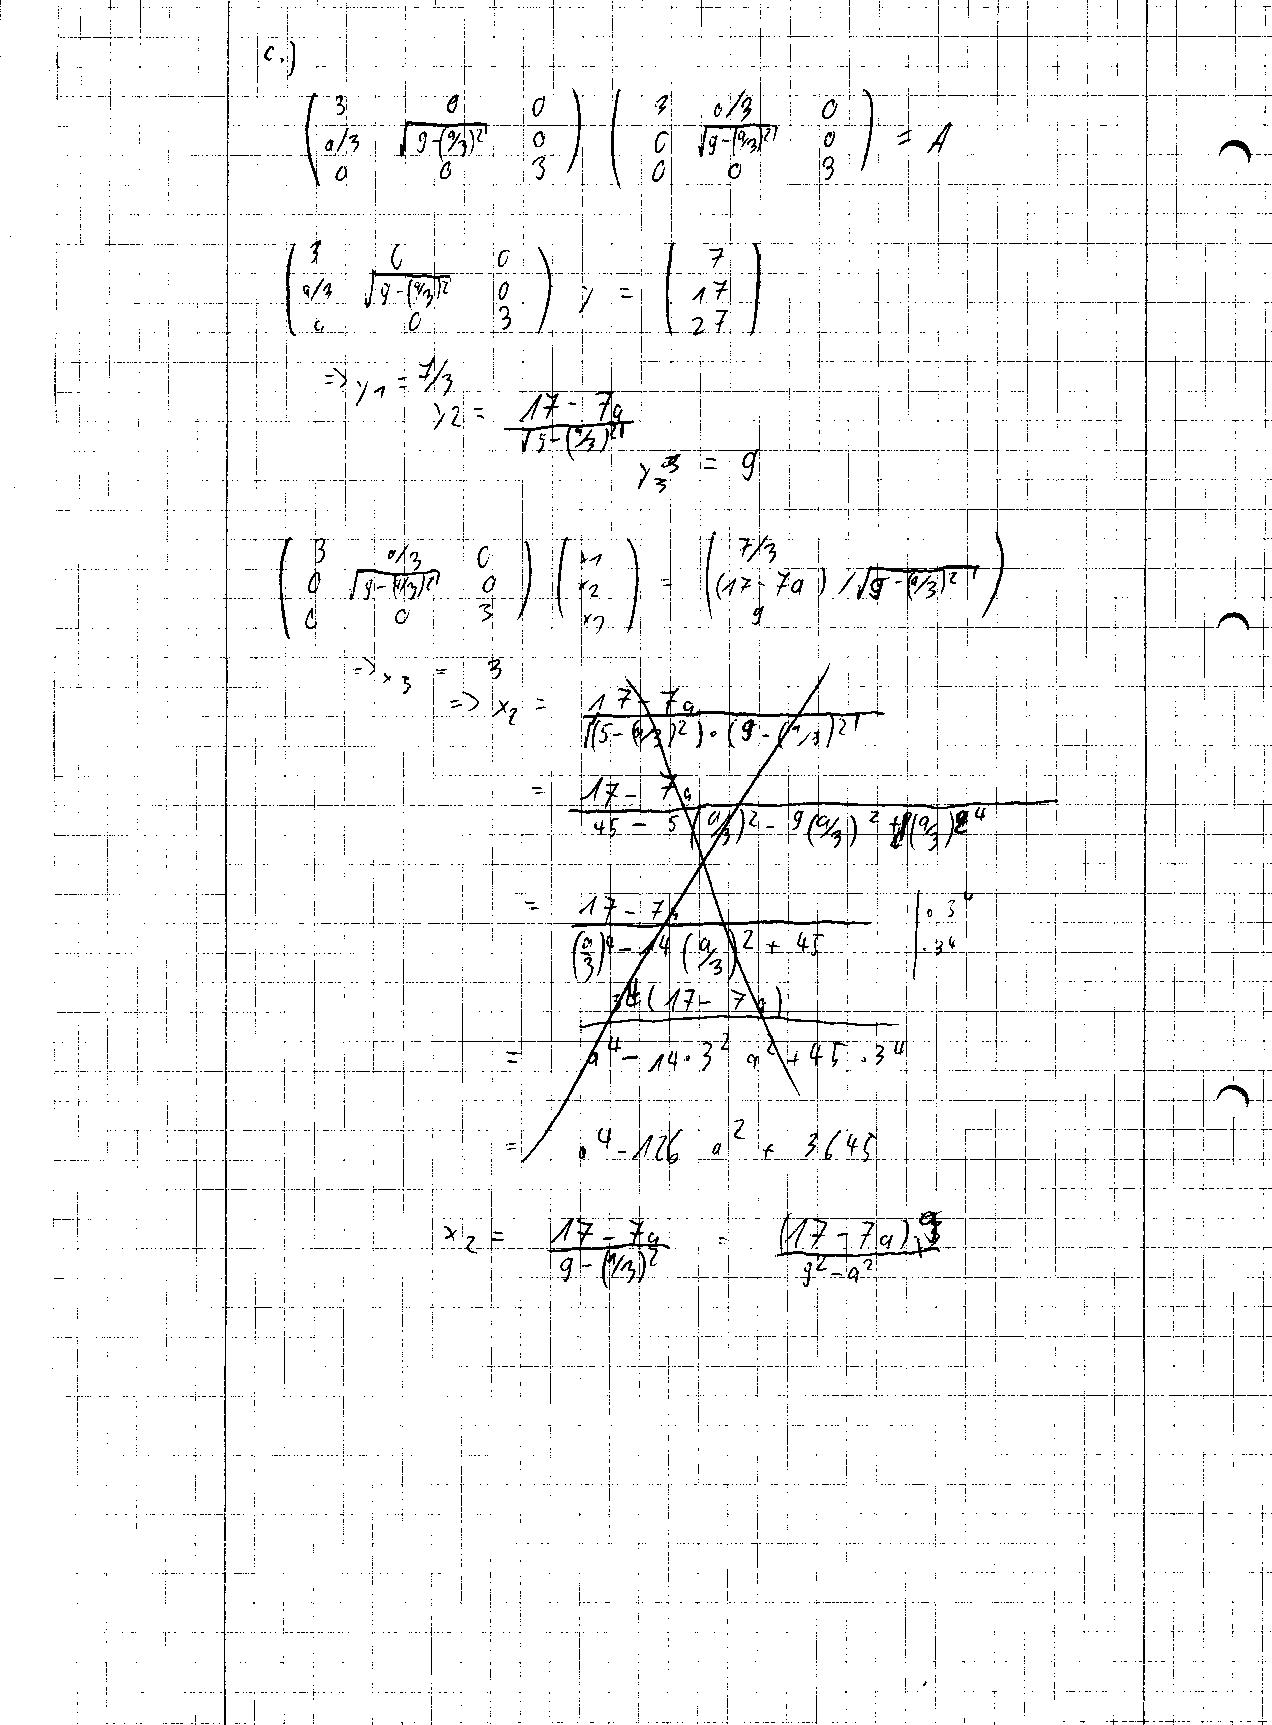 c.)
( 3 0 0 ) ( 3 a/3 0 )
( a/3 √9-(a/3)² 0 ) ( 0 √9-(a/3)² 0 ) = A
( 0 0 3 ) ( 0 0 3 )
( 3 0 0 ) ( 7 )
( a/3 √9-(a/3)² 0 ) y = ( 17 )
( 0 0 3 ) ( 27 )
=> y1 = 7/3
y2 = 17 - 7a / √5-(a/3)²
y3 = 9
( 3 a/3 0 ) ( x1 ) ( 7/3 )
( 0 √9-(a/3)² 0 ) ( x2 ) = ( (17-7a) / √9-(a/3)² )
( 0 0 3 ) ( x3 ) ( 9 )
=> x3 = 3
=> x2 = 17 - 7a / √(5-(a/3)²)·(9-(a/3)²
= 17 - 7a / 45 - 5(a/3)² - 9(a/3)² + (a/3)⁴
= 17 - 7a / (a/3)⁴ - 14 (a/3)² + 45 | · 3⁴ · 3⁴
= 3⁴(17 - 7a) / a⁴ - 14·3² a² + 45 · 3⁴
= a⁴ - 126 a² + 3645
x2 = 17 - 7a / 9-(a/3)² = (17 - 7a)·9 / 9² - a²